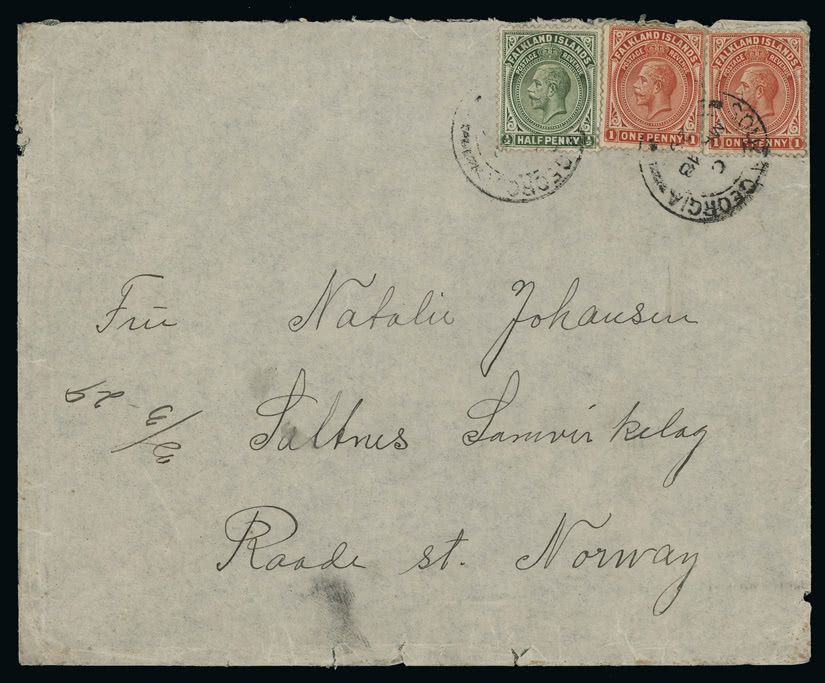 FALKLAND ISLANDS
POSTAGE REVENUE
½ HALF PENNY ½
FALKLAND ISLANDS
POSTAGE REVENUE
1 ONE PENNY 1
FALKLAND ISLANDS
POSTAGE REVENUE
1 ONE PENNY 1
GEORG
SOUTH GEORGIA
C
18
Frü Natalie Johansen
Saltnes Samvirkelag
Raade st. Norway